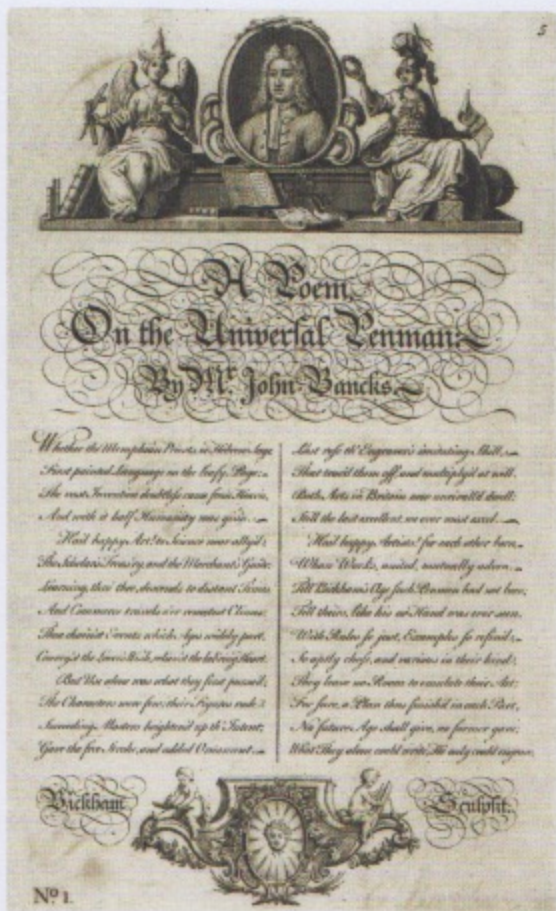 5
A Poem,
On the Universal Penman:
By Mr. John Bancks.
Whether the Memphian Priests, or Hebrew Sage
First painted Language on the Page:
The vast Invention doubtless came from Heav'n,
And with it half Humanity was giv'n.
Hail happy Art! to Science near ally'd:
The Scholar's Treasury, and the Merchant's Guide:
Learning, thro' thee, descends to distant Times
And Commerce travels o'er remotest Climes:
Thou Events which Ages widely part,
Convey'st the Lover's Wish, the lab'ring Heart.
But Use alone was what they first pursu'd;
The Characters were few, their Figures rude:
Succeeding Masters heighten'd up th' Intent;
Gave the free Stroke, and added Ornament.
Last rose th' Engraver's imitating Skill,
That touch'd them off, and multiply'd at will.
Both Arts in Britain now unrivall'd dwell:
Still the last excellent, we ever must
Hail happy Artists! for each other born,
Whose Works, united, mutually adorn.
Till Bickham's Age such Penmen had not been,
Till theirs, like his no Hand was ever seen.
With Rules so just, Examples so refin'd;
So aptly chose, and various in their kind;
They leave no Room to emulate their Art:
For sure, a Plan thus finish'd in each Part,
No future Age shall give, no former gave:
What They alone could write, He only could engrave.
Bickham
Sculpsit.
No. 1.